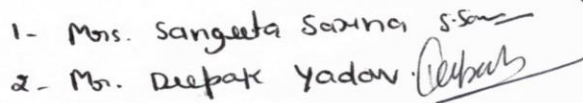 1- Mrs. Sangeeta Saxena
2- Mr. Deepak Yadav. Deepak